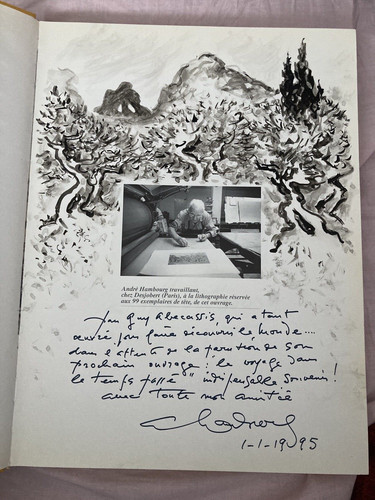 André Hambourg travaillant,
chez Desjobert (Paris), à la lithographie réservée
aux 99 exemplaires de tête, de cet ouvrage.
Guy Abecassis, qui a tant
œuvré pour faire découvrir le monde....
dans l'attente de la parution de son
prochain ouvrage : "le voyage dans
le temps passé" indispensable souvenir !
avec toute mon amitié
1-1-1995